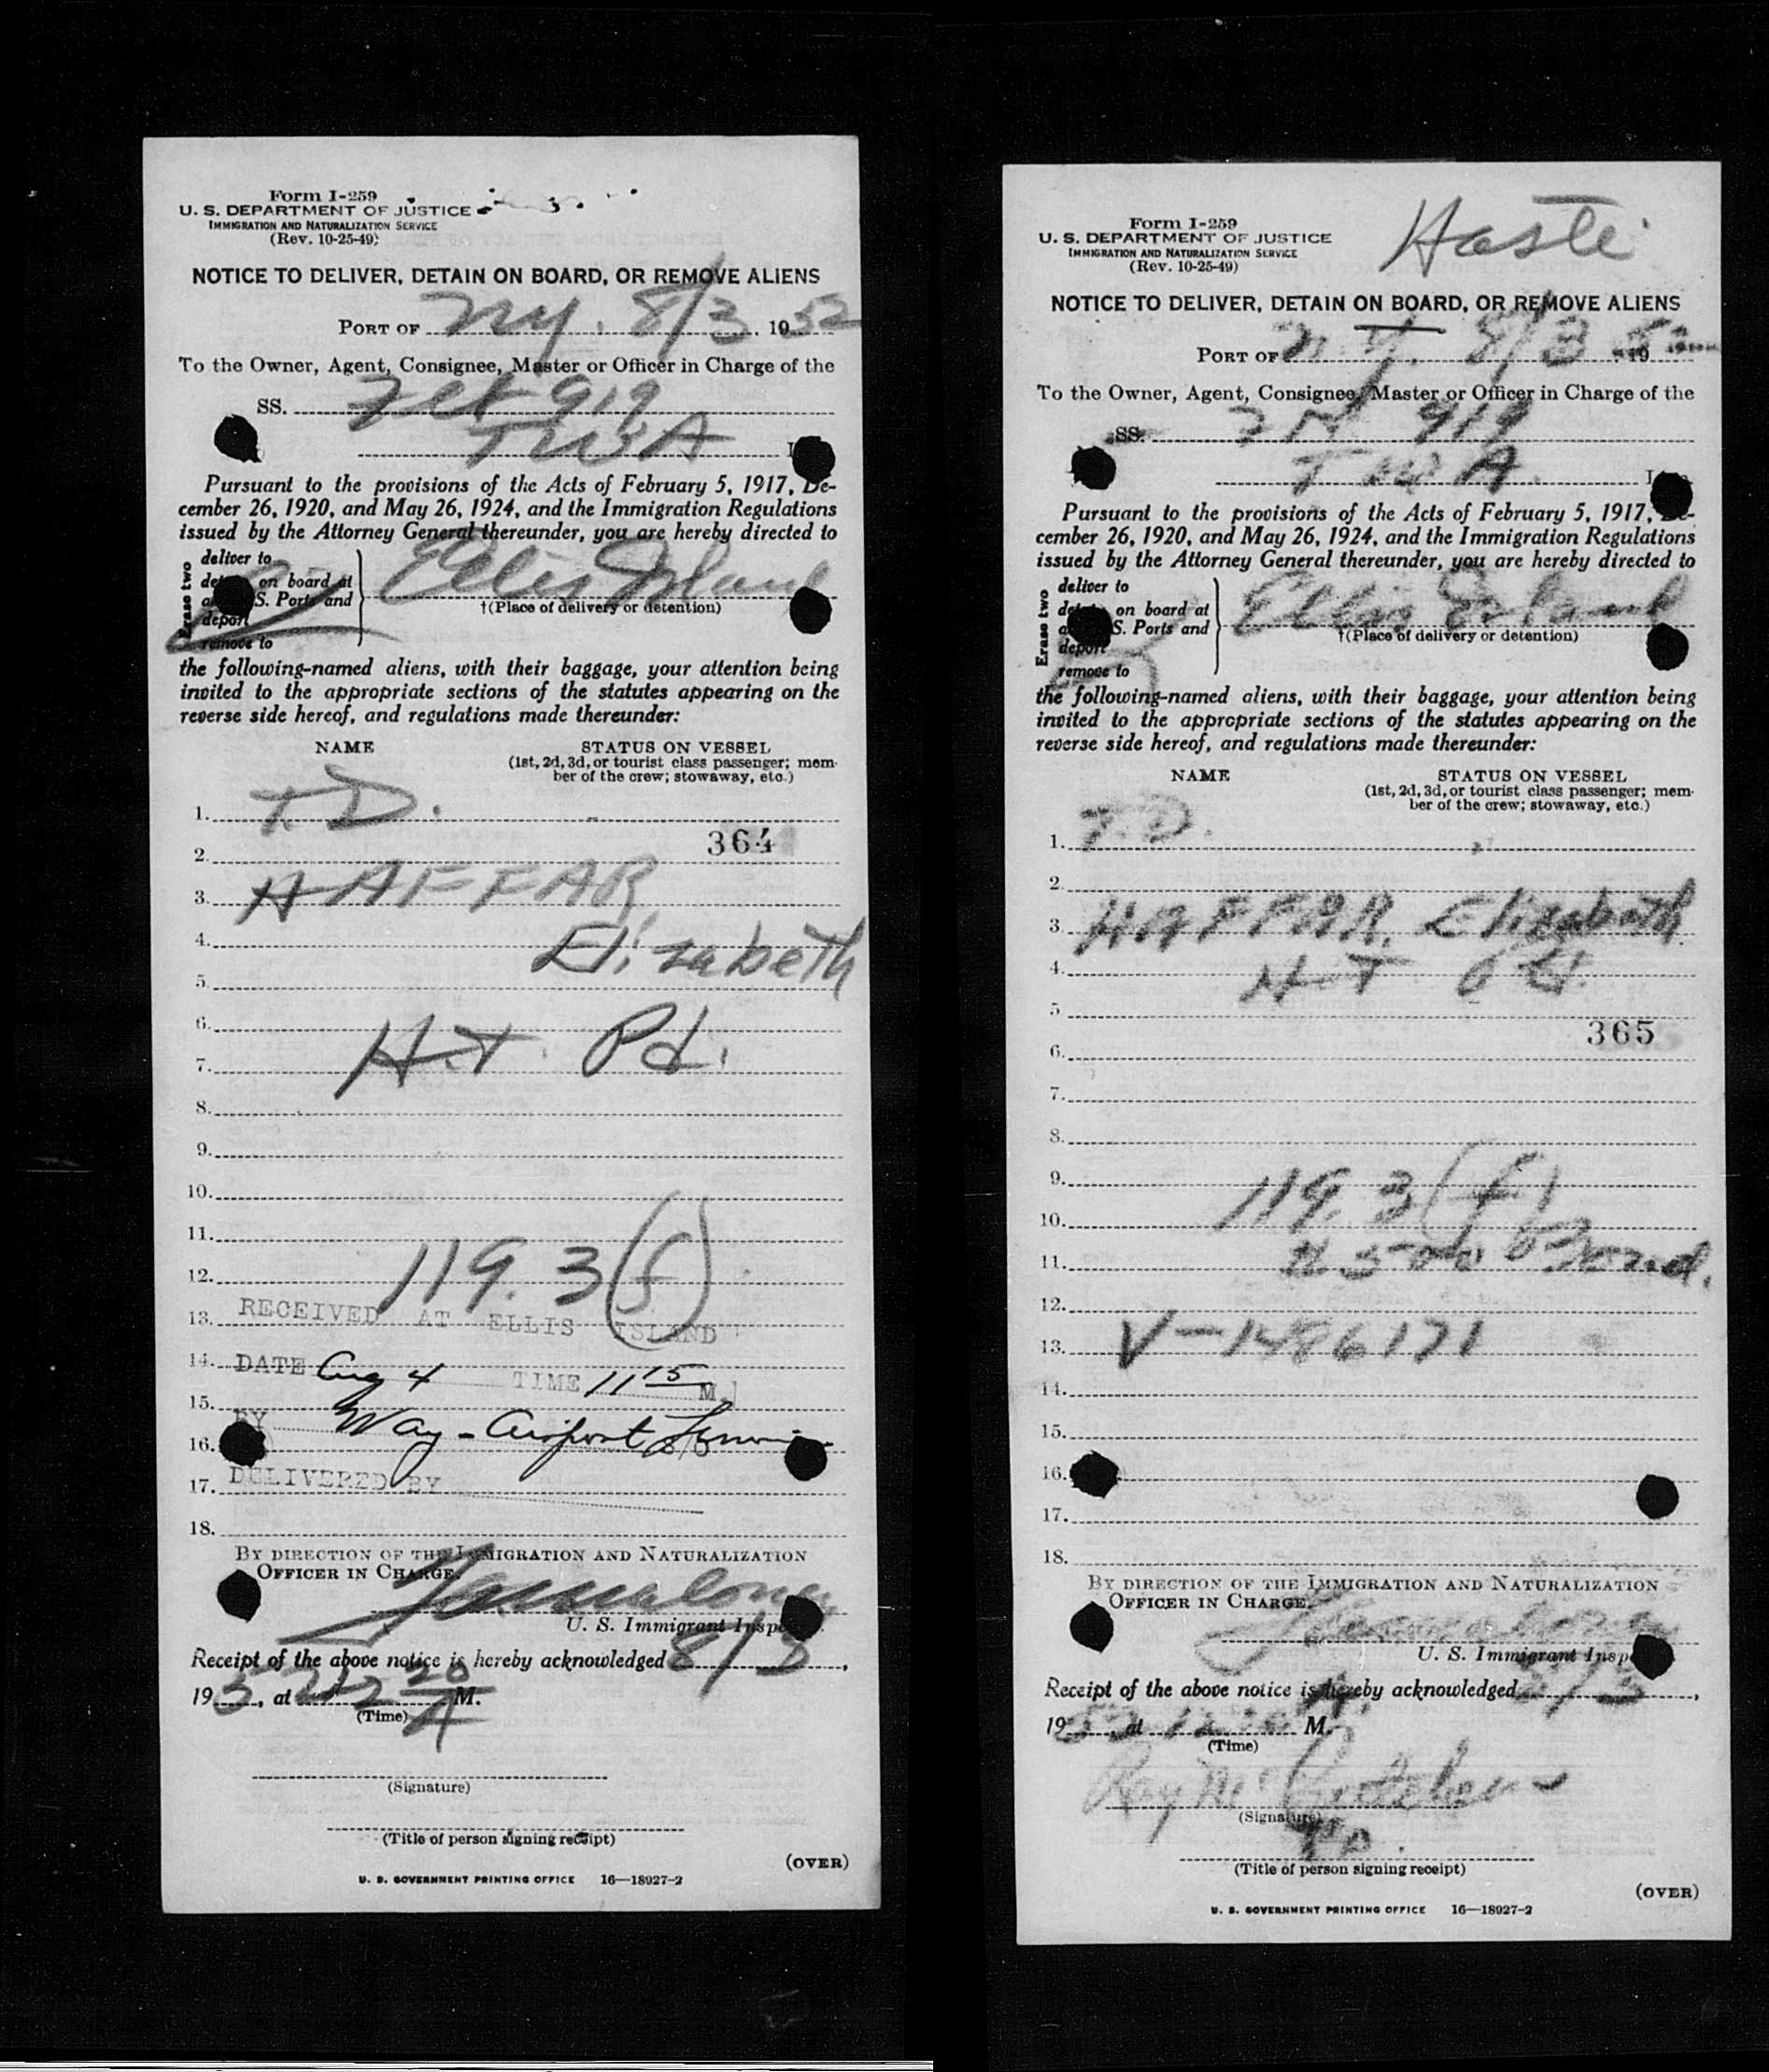 Form I-259
U. S. DEPARTMENT OF JUSTICE
IMMIGRATION AND NATURALIZATION SERVICE
(Rev. 10-25-49)
NOTICE TO DELIVER, DETAIN ON BOARD, OR REMOVE ALIENS
PORT OF NY. 8/3. 1952
To the Owner, Agent, Consignee, Master or Officer in Charge of the
SS. Flt 919
TWA
Pursuant to the provisions of the Acts of February 5, 1917, De-
cember 26, 1920, and May 26, 1924, and the Immigration Regulations
issued by the Attorney General thereunder, you are hereby directed to
Erase two
deliver to
on board at
S. Ports and
deport
remove to
Ellis Island
†(Place of delivery or detention)
the following-named aliens, with their baggage, your attention being
invited to the appropriate sections of the statutes appearing on the
reverse side hereof, and regulations made thereunder:
NAME STATUS ON VESSEL
(1st, 2d, 3d, or tourist class passenger; mem-
ber of the crew; stowaway, etc.)
1. T.D.
2. 364
3. HAFFAR,
4. Elizabeth
5.
6.
7. H.T. Pd.
8.
9.
10.
11.
12. 119.3(f)
13. RECEIVED AT ELLIS ISLAND
14. DATE Aug 4 TIME 11 15 M.
15.
BY Way - Airport
16.
17. DELIVERED BY
18.
BY DIRECTION OF THE IMMIGRATION AND NATURALIZATION
OFFICER IN CHARGE.
U. S. Immigrant Insp
Receipt of the above notice is hereby acknowledged 8/3,
1952, at 12 20 A M.
(Time)
(Signature)
(Title of person signing receipt)
(OVER)
U. S. GOVERNMENT PRINTING OFFICE 16—18927-2
Form I-259
U. S. DEPARTMENT OF JUSTICE
IMMIGRATION AND NATURALIZATION SERVICE
(Rev. 10-25-49)
NOTICE TO DELIVER, DETAIN ON BOARD, OR REMOVE ALIENS
PORT OF N.Y. 8/3 19
To the Owner, Agent, Consignee, Master or Officer in Charge of the
SS. Flt 919
TWA.
Pursuant to the provisions of the Acts of February 5, 1917, De-
cember 26, 1920, and May 26, 1924, and the Immigration Regulations
issued by the Attorney General thereunder, you are hereby directed to
Erase two
deliver to
on board at
S. Ports and
deport
remove to
Ellis Island
†(Place of delivery or detention)
the following-named aliens, with their baggage, your attention being
invited to the appropriate sections of the statutes appearing on the
reverse side hereof, and regulations made thereunder:
NAME STATUS ON VESSEL
(1st, 2d, 3d, or tourist class passenger; mem-
ber of the crew; stowaway, etc.)
1. T.D.
2.
3. HAFFAR, Elizabeth
4. H.T.
5. 365
6.
7.
8.
9.
10. 119.3(f)
11. $500 Bond.
12.
13. V-1486171
14.
15.
16.
17.
18.
BY DIRECTION OF THE IMMIGRATION AND NATURALIZATION
OFFICER IN CHARGE.
U. S. Immigrant Insp
Receipt of the above notice is hereby acknowledged 8/3,
1952, at 12 M.
(Time)
(Signature)
(Title of person signing receipt)
(OVER)
U. S. GOVERNMENT PRINTING OFFICE 16—18927-2